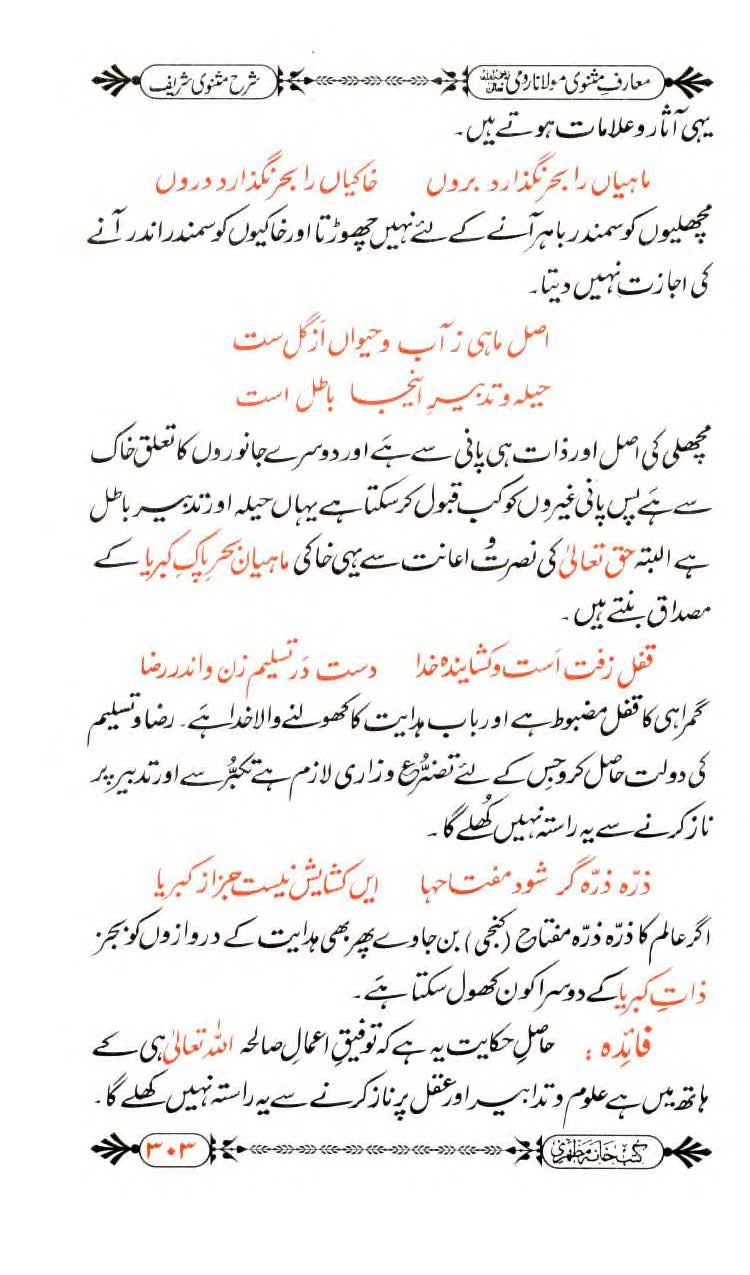 معارفِ مثنوی مولانا رومی رحمہ اللہ تعالیٰ
شرح مثنوی شریف
یہی آثار و علامات ہوتے ہیں۔
ماہیاں را بحر نگذارد بروں خاکیاں را بحر نگذارد دروں
مچھلیوں کو سمندر باہر آنے کے لئے نہیں چھوڑتا اور خاکیوں کو سمندر اندر آنے
کی اجازت نہیں دیتا۔
اصل ماہی ز آب و حیواں اَز گل ست
حیلہ و تدبیرِ اینجا باطل است
مچھلی کی اصل اور ذات ہی پانی سے ہَے اور دوسرے جانوروں کا تعلق خاک
سے ہَے پس پانی غیروں کو کب قبول کرسکتا ہے یہاں حیلہ اور تدبیر باطل
ہے البتہ حق تعالیٰ کی نصرت و اعانت سے یہی خاکی ماہیان بحرِ پاکِ کبریا کے
مصداق بنتے ہیں۔
قفل زفت اَست و کشایندہ خدا دست دَر تسلیم زن و اندر رضا
گمراہی کا قفل مضبوط ہے اور باب ہدایت کا کھولنے والا خدا ہَے۔ رضا و تسلیم
کی دولت حاصل کرو جس کے لئے تضرُّع و زاری لازم ہے تکبُّر سے اور تدبیر پر
ناز کرنے سے یہ راستہ نہیں کُھلے گا۔
ذرّہ ذرّہ گر شود مفتاحہا ایں کشایش نیست جز از کبریا
اگر عالم کا ذرّہ ذرّہ مفتاح (کنجی) بن جاوے پھر بھی ہدایت کے دروازوں کو بجز
ذاتِ کبریا کے دوسرا کون کھول سکتا ہَے۔
فائدہ: حاصل حکایت یہ ہے کہ توفیقِ اعمالِ صالحہ اللہ تعالیٰ ہی کے
ہاتھ میں ہے علوم و تدابیر اور عقل پر ناز کرنے سے یہ راستہ نہیں کھلے گا۔
کتب خانہ مظہری
۳۰۳